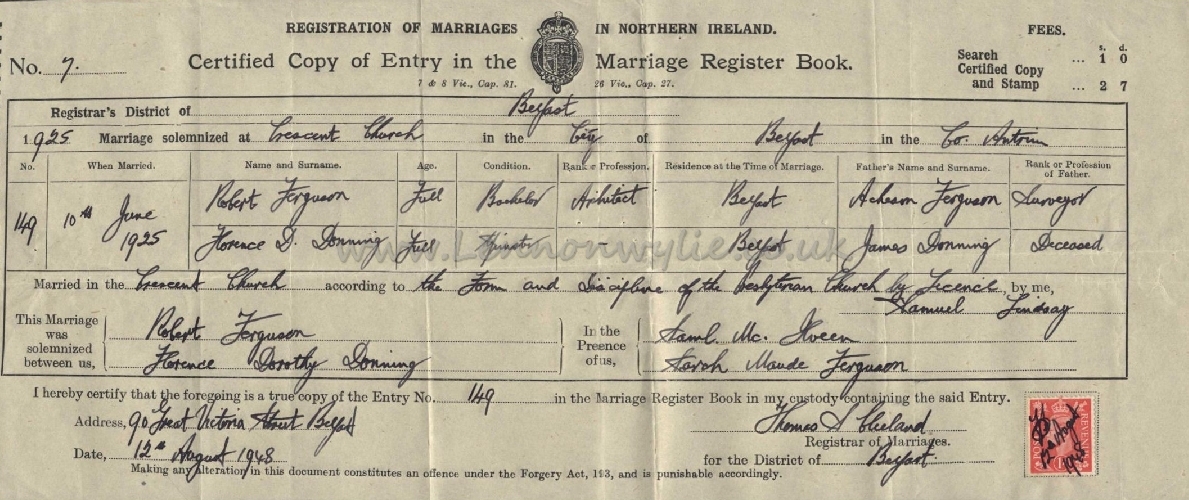 REGISTRATION OF MARRIAGES IN NORTHERN IRELAND. FEES.
No. 7. Certified Copy of Entry in the Marriage Register Book.
7 & 8 Vic., Cap. 81. 26 Vic., Cap. 27.
s. d.
Search ... 1 0
Certified Copy
and Stamp ... 2 7
Registrar's District of Belfast
1925 Marriage solemnized at Crescent Church in the City of Belfast in the Co. Antrim
No. When Married. Name and Surname. Age. Condition. Rank or Profession. Residence at the Time of Marriage. Father's Name and Surname. Rank or Profession of Father.
149 10th June 1925 Robert Ferguson Full Bachelor Architect Belfast Acheson Ferguson Surveyor
Florence D. Donning Full Spinster - Belfast James Donning Deceased
www.Lennonwylie.co.uk
Married in the Crescent Church according to the Form and Discipline of the Presbyterian Church by Licence, by me,
Samuel Lindsay
This Marriage was solemnized between us,
Robert Ferguson
Florence Dorothy Donning
In the Presence of us,
Saml. Mc.
Sarah Maude Ferguson
I hereby certify that the foregoing is a true copy of the Entry No. 149 in the Marriage Register Book in my custody containing the said Entry.
Address, 90 Great Victoria Street Belfast
Thomas S Cleland
Registrar of Marriages.
Date, 12th August 1948
for the District of Belfast.
Making any alteration in this document constitutes an offence under the Forgery Act, 1913, and is punishable accordingly.
REVENUE